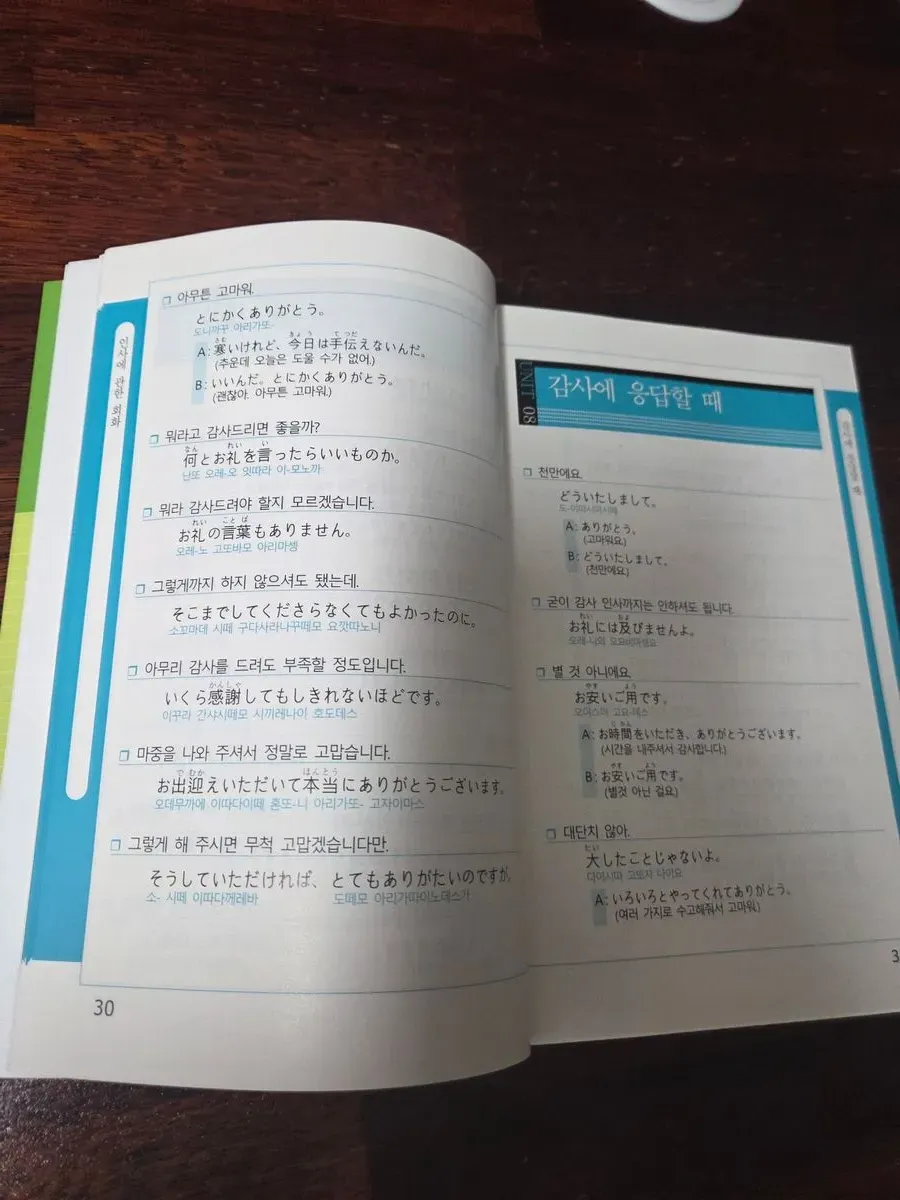 인사에 관한 회화
아무튼 고마워.
とにかくありがとう。
도니까꾸 아리가또-
A: 寒いけれど、今日は手伝えないんだ。
(추운데 오늘은 도울 수가 없어.)
B: いいんだ。とにかくありがとう。
(괜찮아. 아무튼 고마워.)
뭐라고 감사드리면 좋을까?
何とお礼を言ったらいいものか。
난또 오레-오 잇따라 이-모노까
뭐라 감사드려야 할지 모르겠습니다.
お礼の言葉もありません。
오레-노 고또바모 아리마셍
그렇게까지 하지 않으셔도 됐는데.
そこまでしてくださらなくてもよかったのに。
소꼬마데 시떼 구다사라나꾸떼모 요깟따노니
아무리 감사를 드려도 부족할 정도입니다.
いくら感謝してもしきれないほどです。
이꾸라 간샤시떼모 시끼레나이 호도데스
마중을 나와 주셔서 정말로 고맙습니다.
お出迎えいただいて本当にありがとうございます。
오데무까에 이따다이떼 혼또-니 아리가또- 고자이마스
그렇게 해 주시면 무척 고맙겠습니다만.
そうしていただければ、とてもありがたいのですが
소- 시떼 이따다께레바 도떼모 아리가따이노데스가
30
UNIT 08
감사에 응답할 때
천만에요.
どういたしまして。
도-이따시마시떼
A: ありがとう。
(고마워요.)
B: どういたしまして。
(천만에요.)
굳이 감사 인사까지는 안하셔도 됩니다.
お礼には及びませんよ。
오레-니와 오요비마셍요
별 것 아니에요.
お安いご用です。
오야스이 고요-데스
A: お時間をいただき、ありがとうございます。
(시간을 내주셔서 감사합니다.)
B: お安いご用です。
(별것 아닌 걸요.)
대단치 않아.
大したことじゃないよ。
다이시따 고또쟈 나이요
A: いろいろとやってくれてありがとう。
(여러 가지로 수고해줘서 고마워.)
감사에 응답할 때